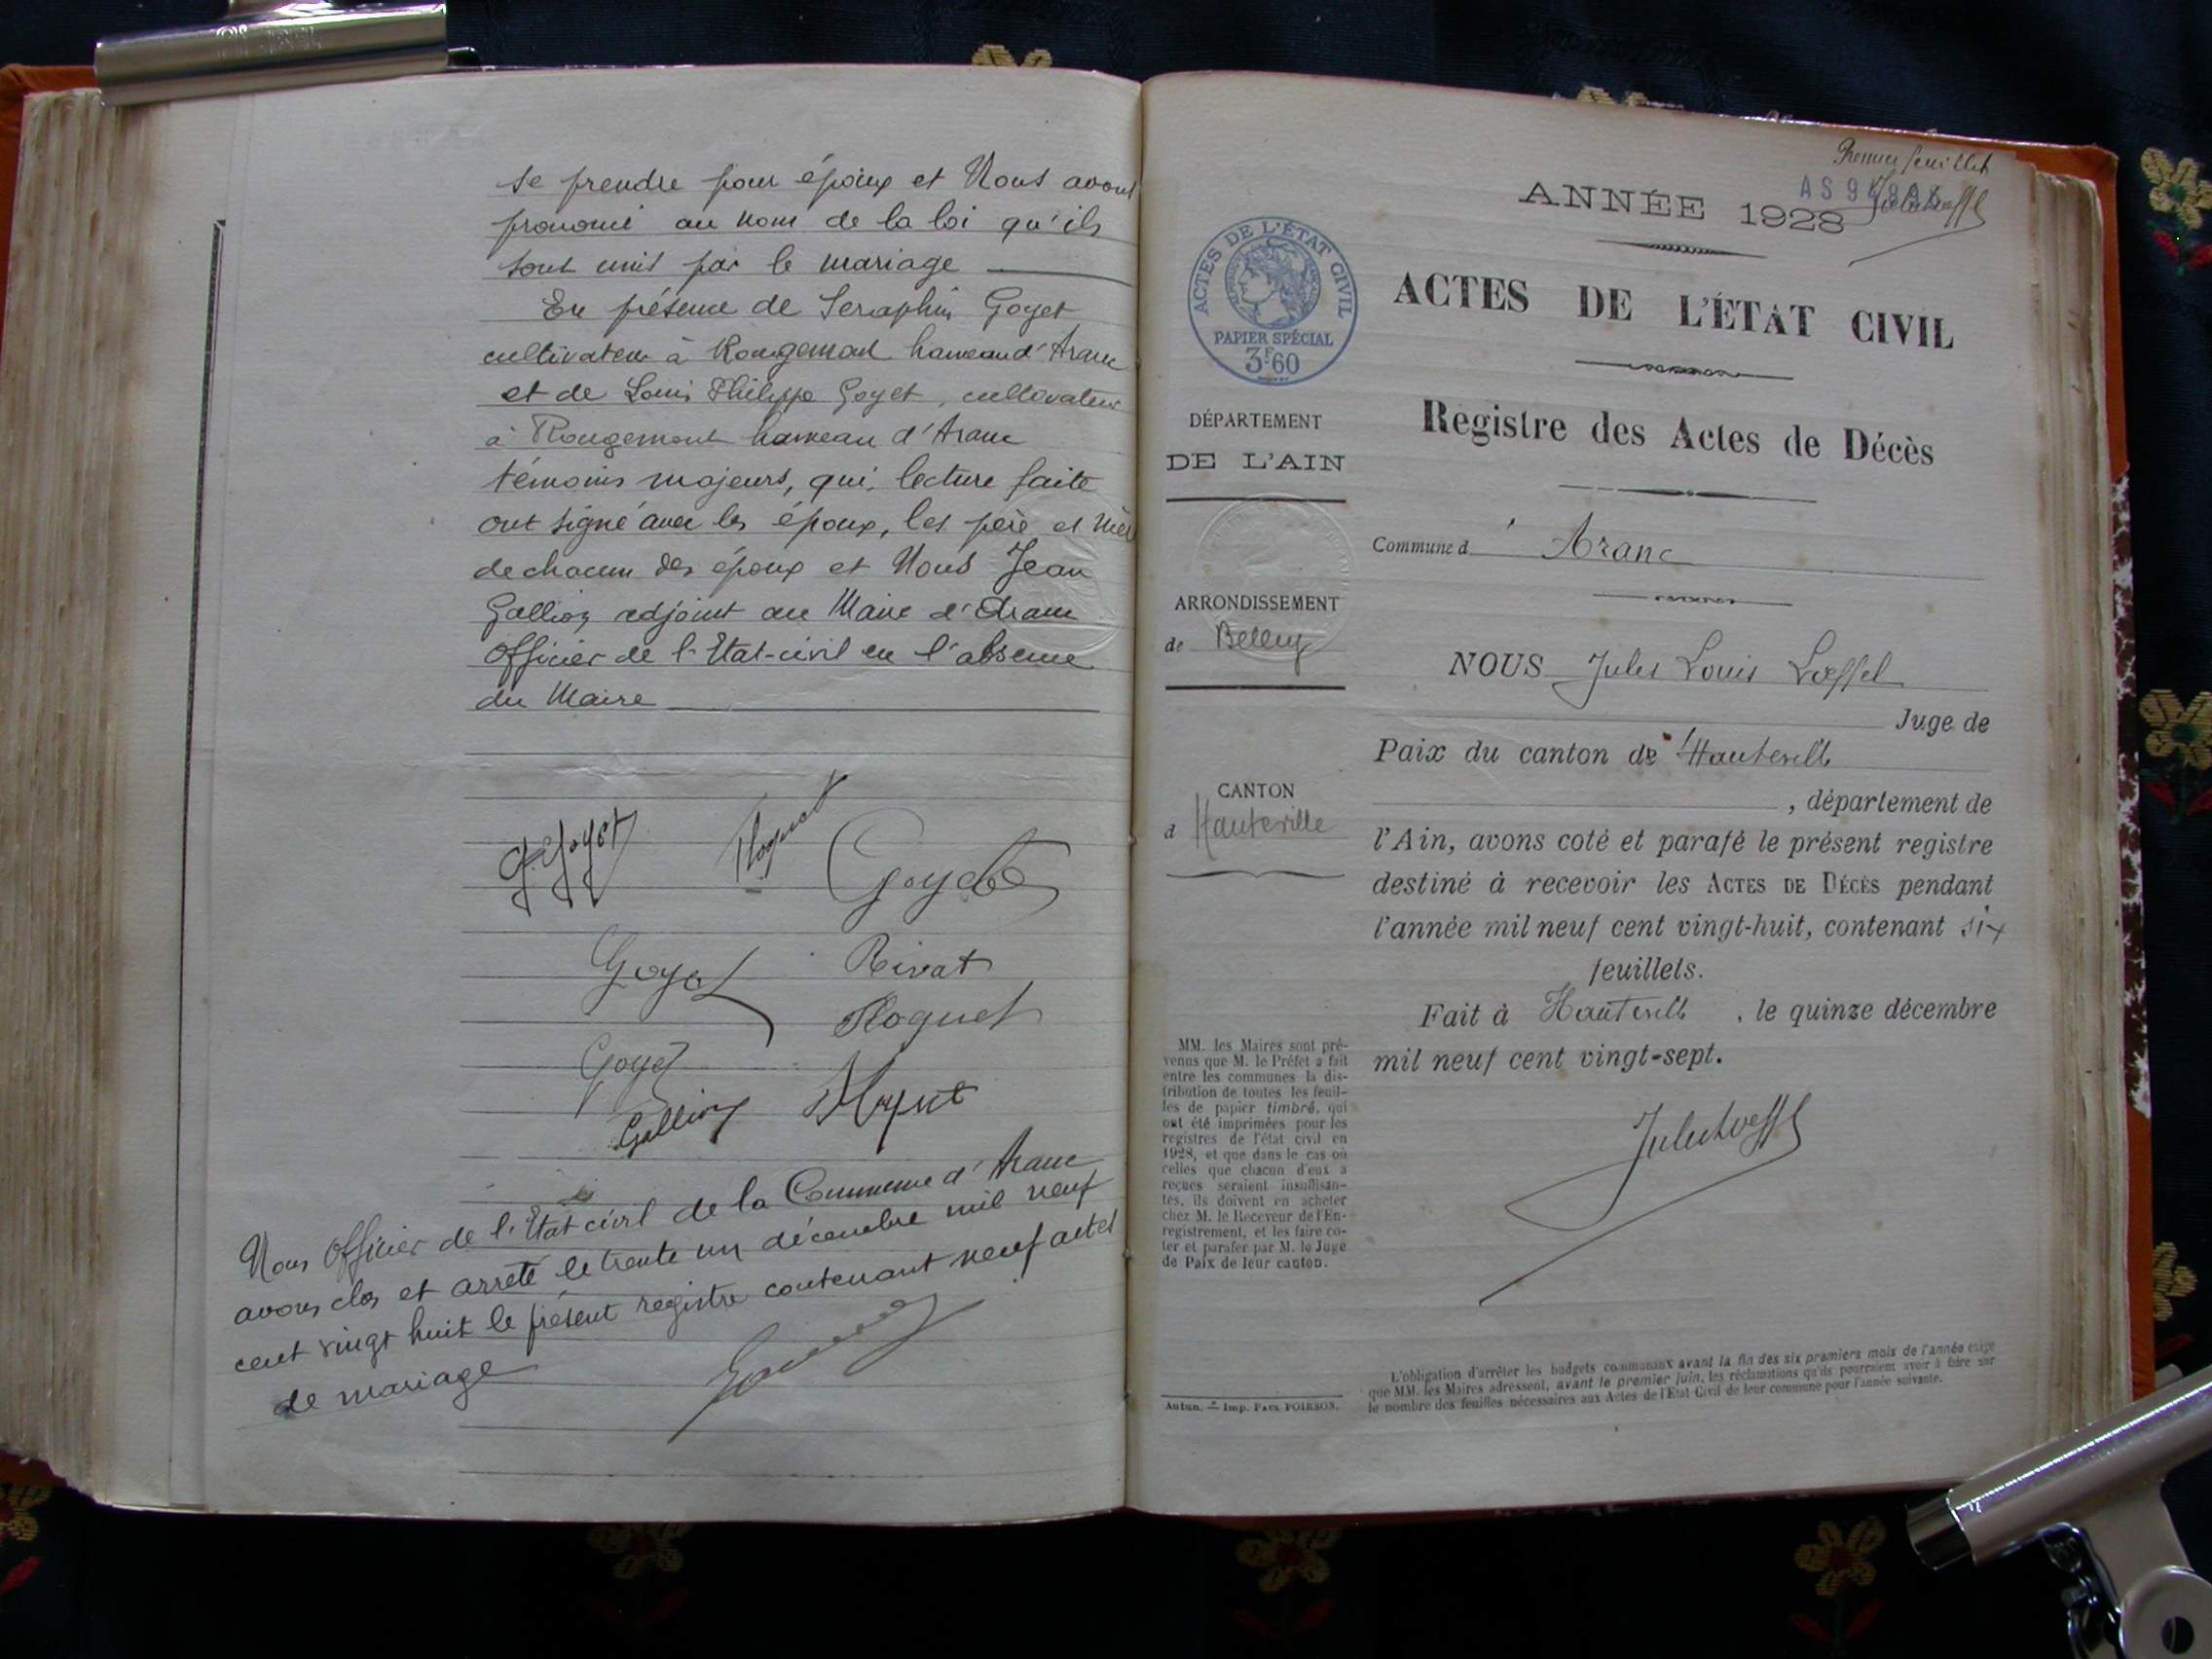 se prendre pour époux et Nous avons
prononcé au nom de la loi qu'ils
sont unis par le mariage
En présence de Seraphin Goyet
cultivateur à Rougemont hameau d'Aranc
et de Louis Philippe Goyet, cultivateur
à Rougemont hameau d'Aranc
témoins majeurs, qui, lecture faite
ont signé avec les époux, les père et mère
de chacun des époux et Nous Jean
Gallion adjoint au Maire d'Aranc
Officier de l'Etat-civil en l'absence
du Maire
Goyet
Floquet
Goyet
Goyet
Rivat
Floquet
Goyet
Gallion
Nous Officier de l'Etat civil de la Commune d'Aranc
avons clos et arrêté le trente un décembre mil neuf
cent vingt huit le présent registre contenant neuf actes
de mariage
Premier feuillet
ANNÉE 1928
ACTES DE L'ÉTAT CIVIL
PAPIER SPÉCIAL
3F60
ACTES DE L'ÉTAT CIVIL
Registre des Actes de Décès
DÉPARTEMENT
DE L'AIN
Commune d' Aranc
ARRONDISSEMENT
de Belley
CANTON
d Hauteville
NOUS Jules Louis Lœffel
Juge de
Paix du canton de Hauteville
, département de
l'Ain, avons coté et parafé le présent registre
destiné à recevoir les ACTES DE DÉCÈS pendant
l'année mil neuf cent vingt-huit, contenant six
feuillets.
Fait à Hauteville, le quinze décembre
mil neuf cent vingt-sept.
Jules Lœffel
MM. les Maires sont pré-
venus que M. le Préfet a fait
entre les communes la dis-
tribution de toutes les feuil-
les de papier timbré, qui
ont été imprimées pour les
registres de l'état civil en
1928, et que dans le cas où
celles que chacun d'eux a
reçues seraient insuffisan-
tes, ils doivent en acheter
chez M. le Receveur de l'En-
registrement, et les faire co-
ter et parafer par M. le Juge
de Paix de leur canton.
Autun. — Imp. PAUL POIRSON.
L'obligation d'arrêter les budgets communaux avant la fin des six premiers mois de l'année exige
que MM. les Maires adressent, avant le premier juin, les réclamations qu'ils pourraient avoir à faire sur
le nombre des feuilles nécessaires aux Actes de l'Etat-Civil de leur commune pour l'année suivante.